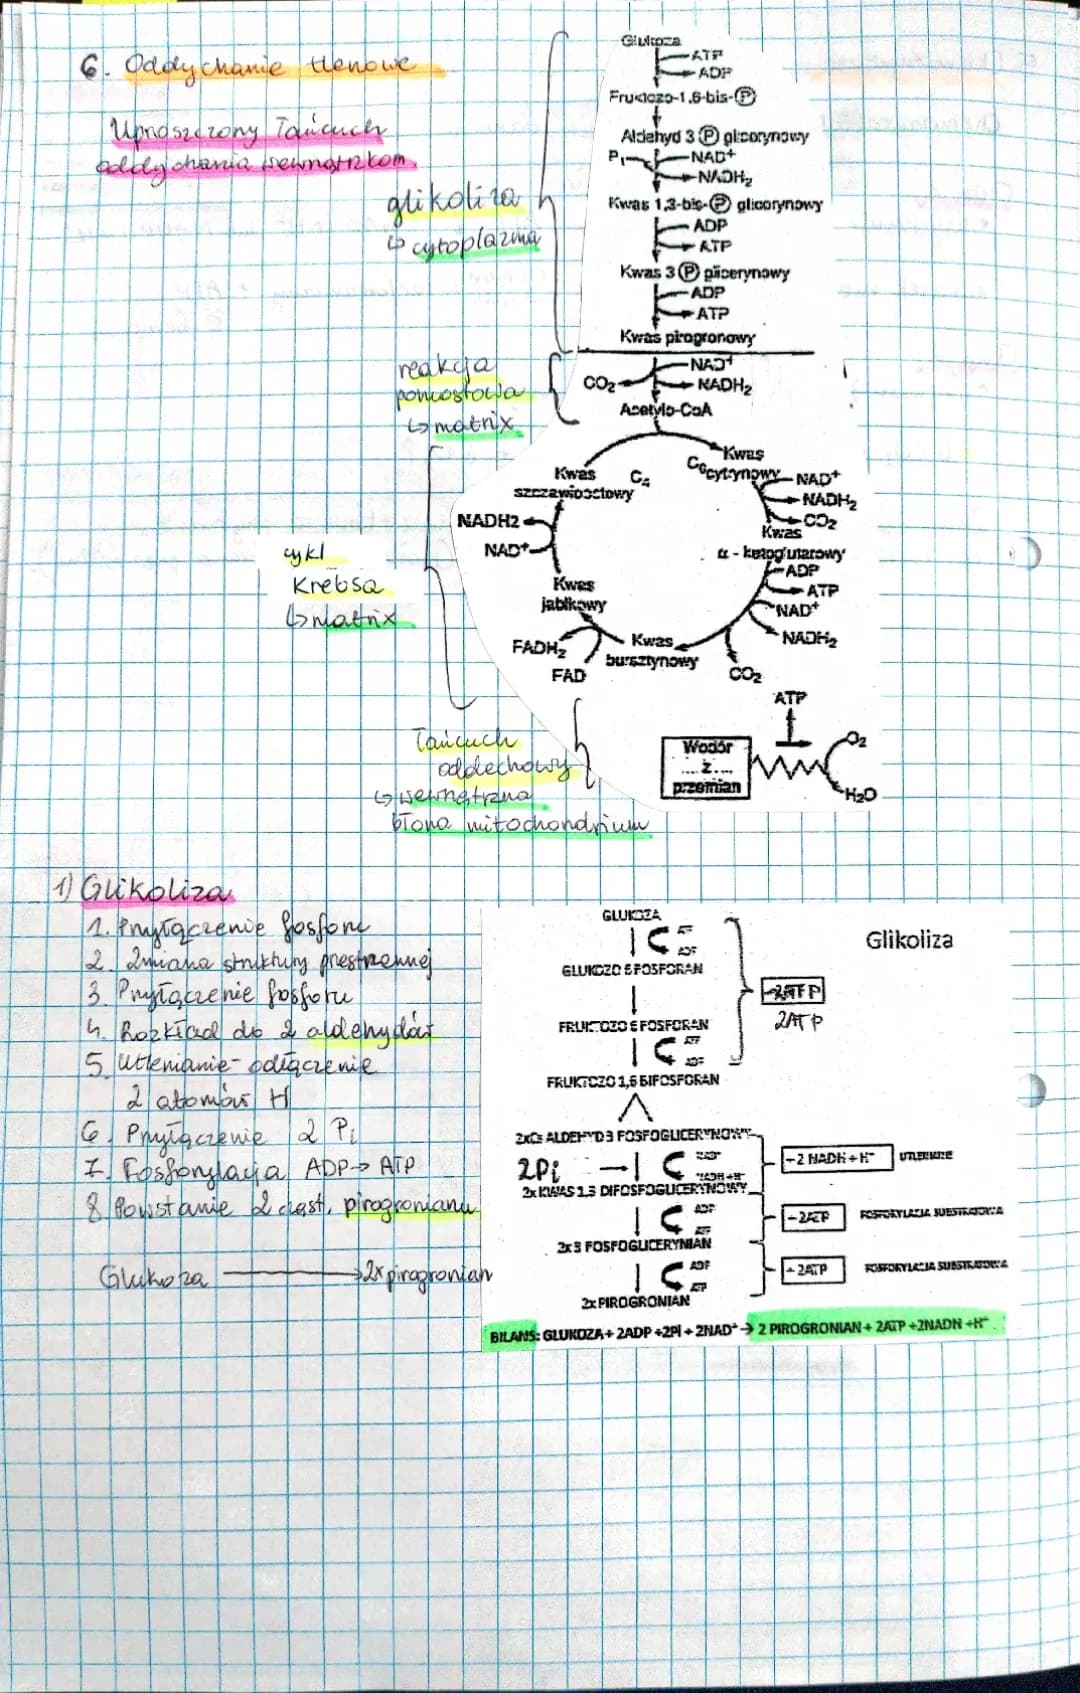 6. Oddychanie tlenowe
Uproszczony Łańcuch
oddychania wewnątrzkom.
glikoliza
↳ cytoplazma
Glukoza
ATP
ADP
Fruktozo-1,6-bis-Ⓟ
Aldehyd 3 Ⓟ glicerynowy
Pi
NAD+
NADH₂
Kwas 1,3-bis-Ⓟ glicerynowy
ADP
ATP
Kwas 3 Ⓟ glicerynowy
ADP
ATP
Kwas pirogronowy
reakcja
pomostowa
↳ matrix
NAD+
CO₂
NADH₂
Acetylo-CoA
cykl
Krebsa
↳ matrix
Kwas
szczawiooctowy
C₄
Kwas
C₆ cytrynowy
NAD+
NADH₂
CO₂
Kwas
α - ketoglutarowy
ADP
ATP
NAD+
NADH₂
CO₂
Kwas
bursztynowy
FADH₂
FAD
Kwas
jabłkowy
NADH2
NAD+
Łańcuch
oddechowy
↳ wewnętrzna
błona mitochondrium
Wodór
....z....
przemian
ATP
O₂
H₂O
1) Glikoliza
1. Przyłączenie fosforu
2. Zmiana struktury przestrzennej
3. Przyłączenie fosforu
4. Rozkład do 2 aldehydów
5. Utlenianie - odłączenie
2 atomów H
6. Przyłączenie 2 Pi
7. Fosforylacja ADP → ATP
8. Powstanie 2 cząst. pirogronianu
Glukoza → 2x pirogronian
Glikoliza
GLUKOZA
ATP
ADP
GLUKOZO 6 FOSFORAN
FRUKTOZO 6 FOSFORAN
ATP
ADP
FRUKTOZO 1,6 BIFOSFORAN
2ATP
2xC₃ ALDEHYD 3 FOSFOGLICERYNOWY
2Pi
NAD+
NADH+H+
2x KWAS 1,3 DIFOSFOGLICERYNOWY
ADP
ATP
2x 3 FOSFOGLICERYNIAN
ADP
ATP
2x PIROGRONIAN
-2 NADH + H+ UTLENIANIE
-2ATP FOSFORYLACJA SUBSTRATOWA
-2ATP FOSFORYLACJA SUBSTRATOWA
BILANS: GLUKOZA + 2ADP +2Pi + 2NAD+ → 2 PIROGRONIAN + 2ATP +2NADH +H+